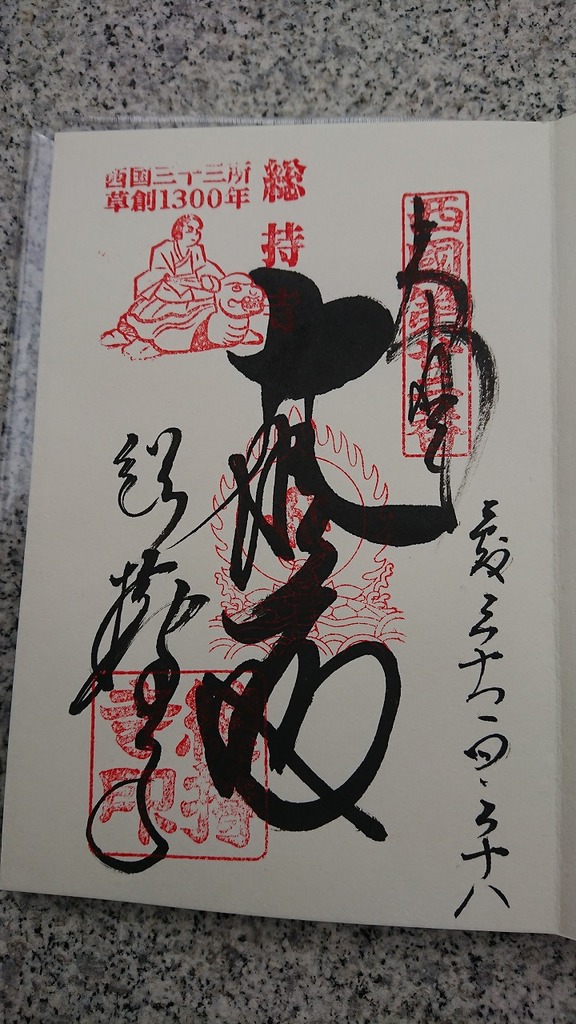 西国三十三所
草創1300年
総持寺
西國第廿二番
平成三十一・四・二十八
総持寺
総持寺印